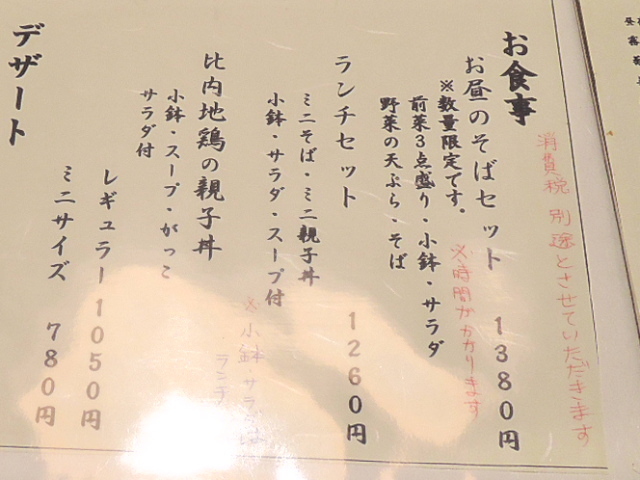 お食事
消費税 別途とさせていただきます
お昼のそばセット 1380円
※数量限定です。
※時間がかかります
前菜3点盛り・小鉢・サラダ
野菜の天ぷら・そば
ランチセット 1260円
ミニそば・ミニ親子丼
小鉢・サラダ・スープ付
※小鉢 サラダは
ランチ
比内地鶏の親子丼
小鉢・スープ・がっこ
サラダ付
レギュラー 1050円
ミニサイズ 780円
デザート